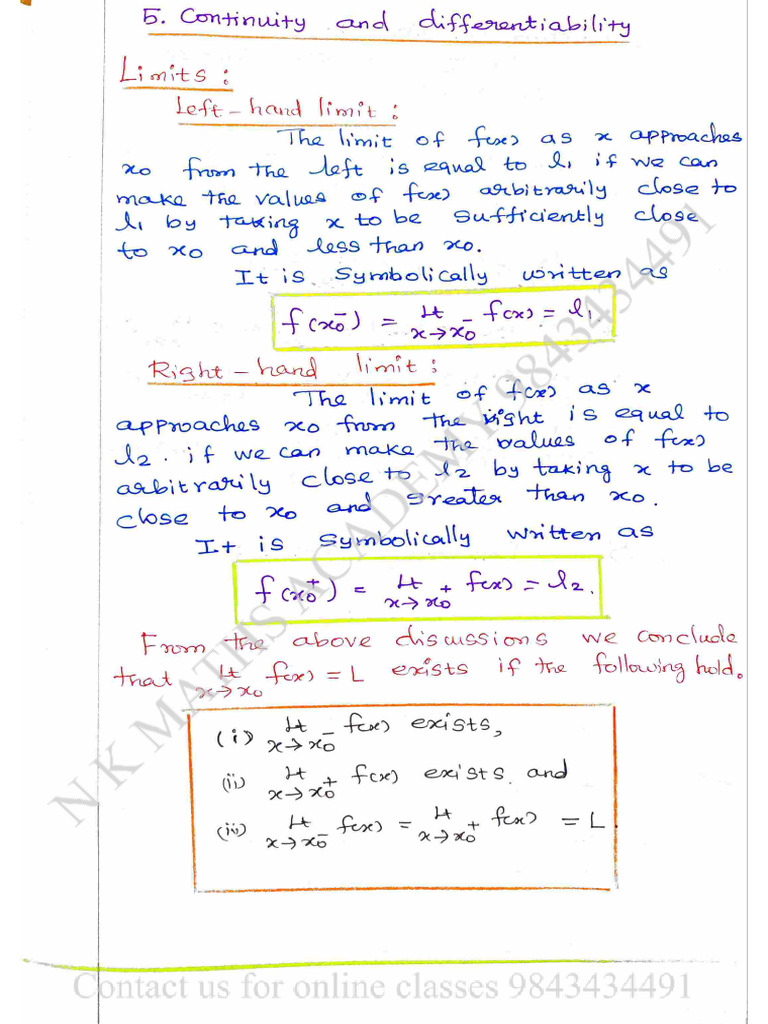 5. Continuity and differentiability
Limits :
Left-hand limit :
The limit of f(x) as x approaches
x₀ from the left is equal to l₁ if we can
make the values of f(x) arbitrarily close to
l₁ by taking x to be sufficiently close
to x₀ and less than x₀.
It is symbolically written as
f(x₀⁻) = Lt x→x₀⁻ f(x) = l₁.
Right-hand limit :
The limit of f(x) as x
approaches x₀ from the right is equal to
l₂. if we can make the values of f(x)
arbitrarily close to l₂ by taking x to be
close to x₀ and greater than x₀.
It is symbolically written as
f(x₀⁺) = Lt x→x₀⁺ f(x) = l₂.
From the above discussions we conclude
that Lt x→x₀ f(x) = L exists if the following hold.
(i) Lt x→x₀⁻ f(x) exists,
(ii) Lt x→x₀⁺ f(x) exists and
(iii) Lt x→x₀⁻ f(x) = Lt x→x₀⁺ f(x) = L.
N K MATHS ACADEMY 9843434491
Contact us for online classes 9843434491